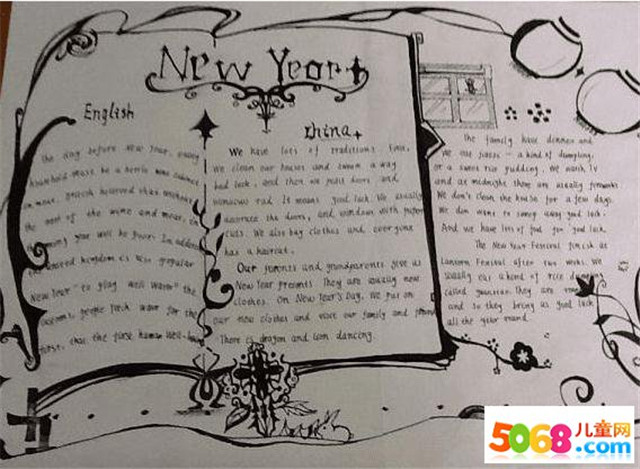 New Year
English
China
The day before New Year, every
household must be a bottle wine cabinet
in meat. British believed that without
the rest of the wine and meat, in
coming year will be poor. In addition
the united kingdom is also popular
New Year "to play well water" the
customs, people fetch water for the
first, that the first human well-being
We have lots of traditions too.
We clean our houses and sweep a way
bad luck, and then we paint doors and
windows red. It means good luck. We usually
decorate the doors, and windows with paper
cuts. We also buy clothes and everyone
has a haircut.
Our parents and grandparents give us
New Year presents. They are usually new
clothes. On New Year's Day, we put on
our new clothes and visit our family and friends
There is dragon and lion dancing.
The family have dinner and
We eat jiaozi - a kind of dumpling,
or a sweet rice pudding. We watch TV
and at midnight there are usually fireworks
We don't clean the house for a few days.
We don want to sweep away good luck.
And we have lots of food for good luck.
The New Year Festival finish at
Lantern Festival after two weeks. We
usually eat a kind of rice dumpling
called yuanxiao. They are round
and so they bring us good luck
all the year round.
5068儿童网
www.5068.com